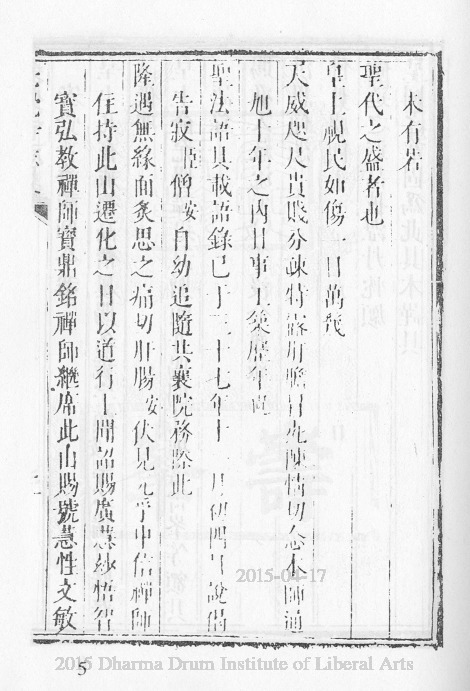 未有若
聖代之盛者也
皇上視民如傷一日萬幾
天威咫尺貴賤分疎特露肝膽冒死陳情切念本師通
旭十年之內日事工築歷年
聖法語具載語錄已于三十七年十一月初四日說偈
告寂臣僧安自幼追隨共襄院務際此
隆遇無緣面炙思之痛切肝腸安伏見元乎中信禪師
住持此山遷化之日以道行上聞詔賜廣慧妙悟智
寶弘教禪師寶鼎銘禪師繼席此山賜號慧性文敏
2015-04-17
5
2015 Dharma Drum Institute of Liberal Arts